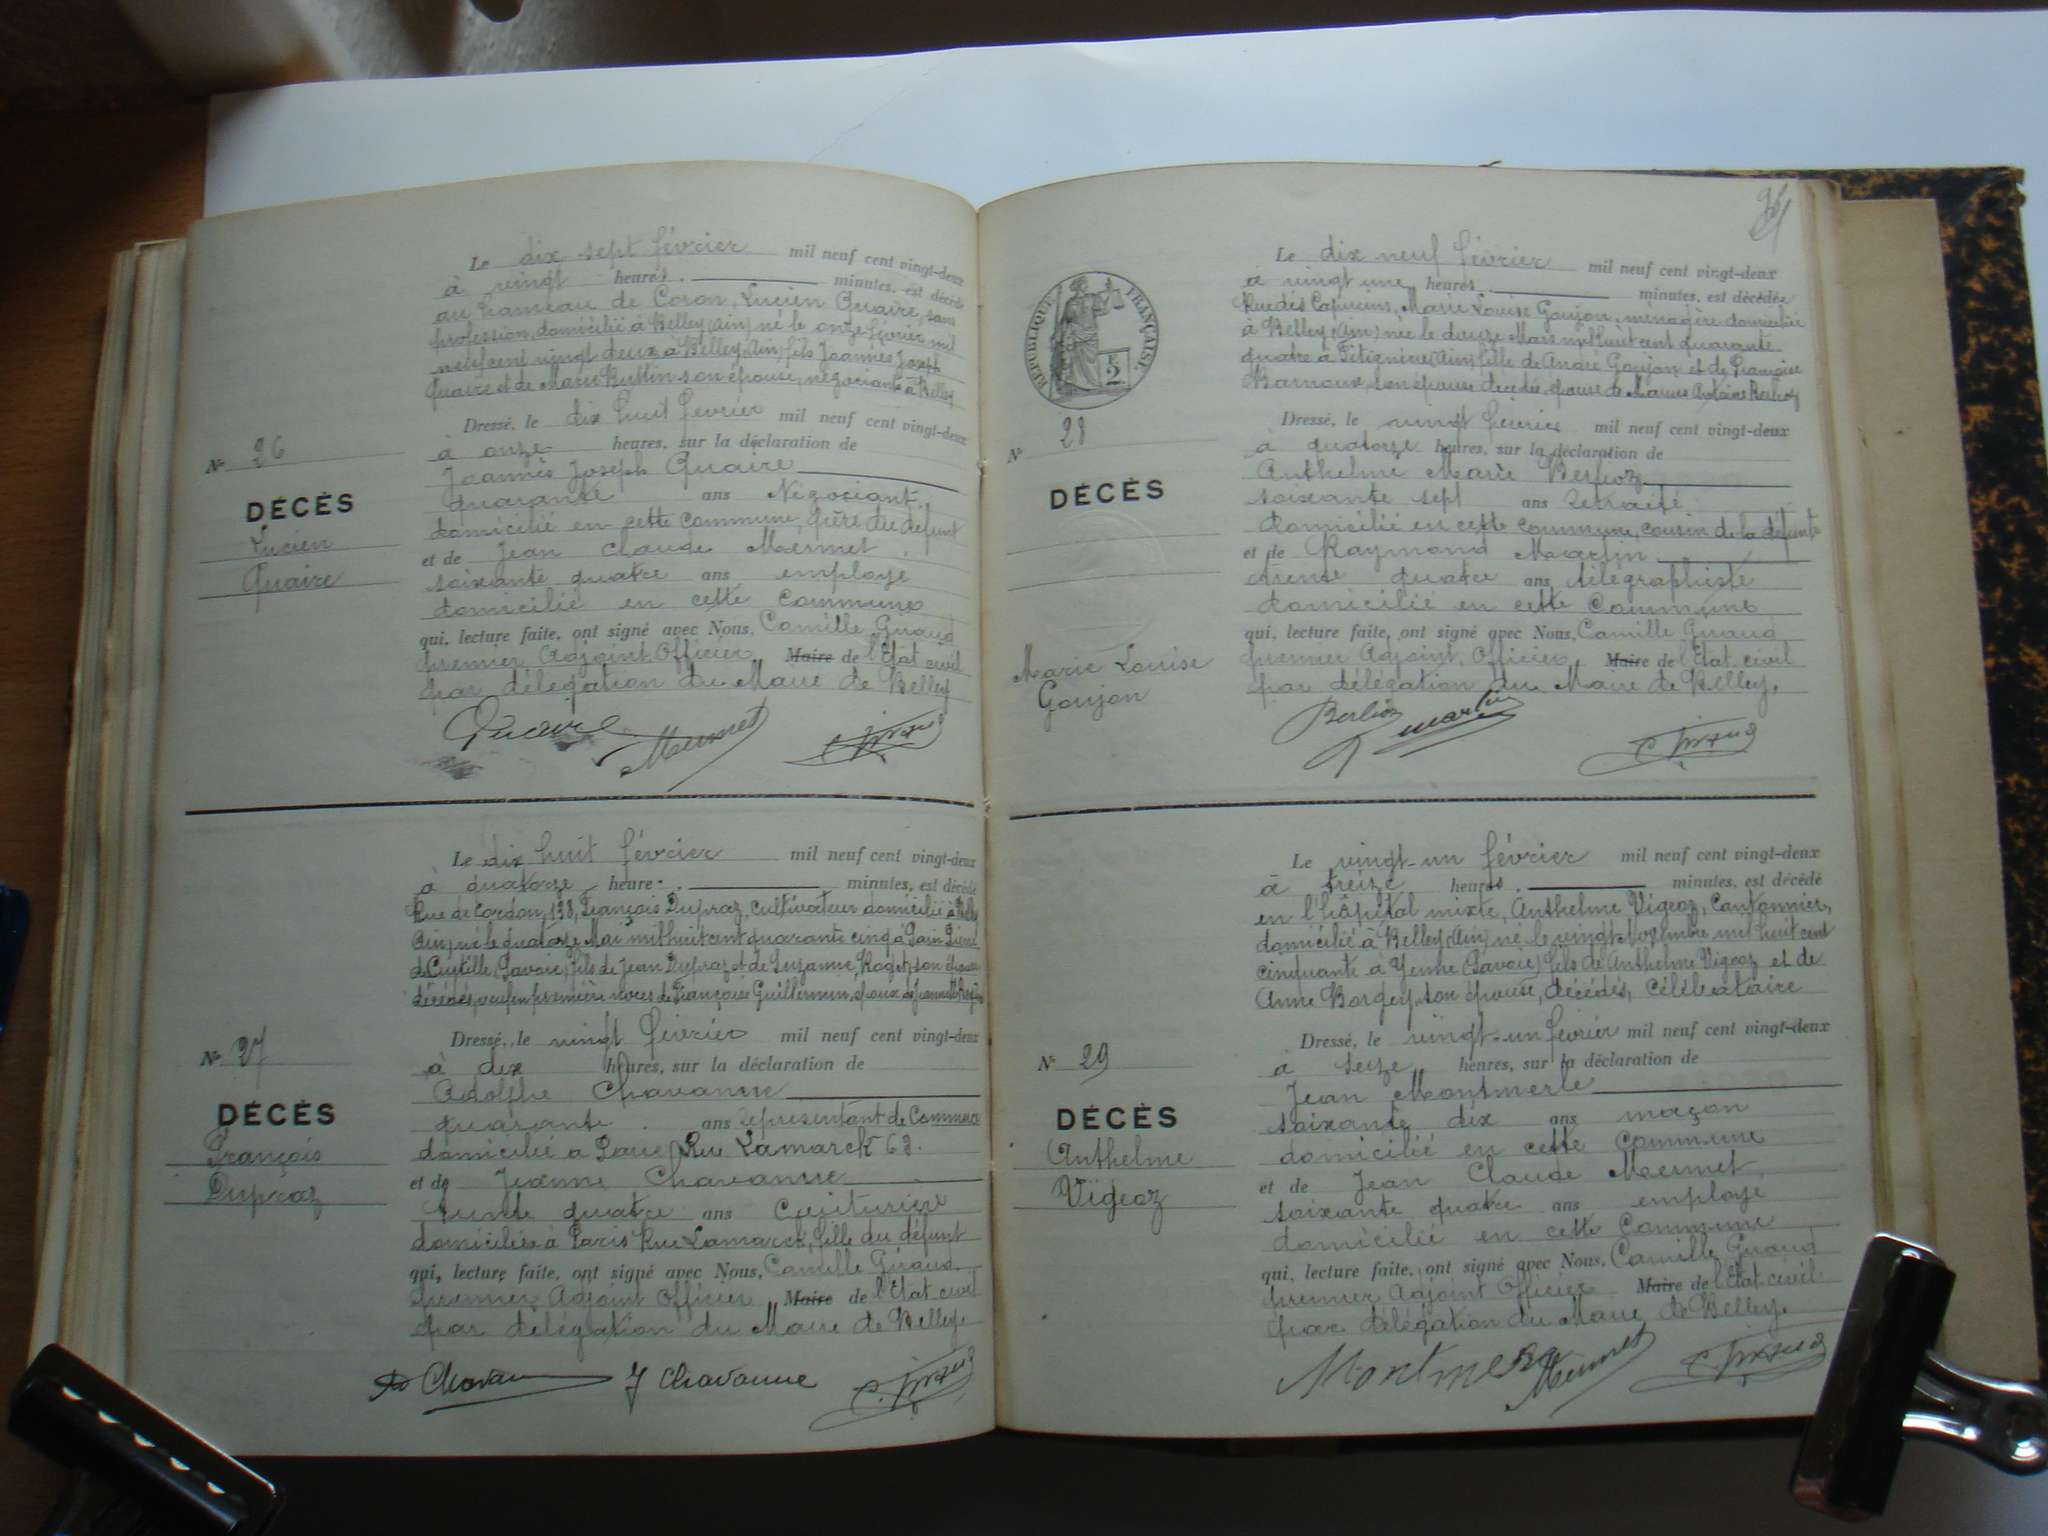 Le dix sept février mil neuf cent vingt-deux
à vingt heures, minutes, est décédé
au hameau de Coron, Lucien Quaire, sans
profession, domicilié à Belley (Ain) né le onze février mil
neuf cent vingt deux à Belley (Ain) fils Joannès Joseph
Quaire et de Marie son épouse, négociants à Belley
Dressé, le dix huit février mil neuf cent vingt-deux
à onze heures, sur la déclaration de
Joannès Joseph Quaire
quarante ans Négociant,
domicilié en cette commune, père du défunt
et de Jean Claude Mermet,
soixante quatre ans employé
domicilié en cette commune
qui, lecture faite, ont signé avec Nous, Camille Giraud
premier Adjoint, Officier Maire de l'Etat civil
par délégation du Maire de Belley
N° 26
DÉCÈS
Lucien
Quaire
Quaire Mermet C. Giraud
Le dix huit février mil neuf cent vingt-deux
à quatorze heures, minutes, est décédé
Rue de Cordon, 198, François Dupraz, cultivateur domicilié à Belley
(Ain) né le quatorze Mai mil huit cent quarante cinq à Saint Pierre
(Savoie) fils de Jean Dupraz et de Suzanne Roget, son épouse
décédés, veuf en première noces de Françoise Guillermin, époux de Jeannette
Dressé, le vingt février mil neuf cent vingt-deux
à dix heures, sur la déclaration de
Adolphe Chavanne
quarante ans représentant de Commerce
domicilié à Paris, Rue Lamarck 63.
et de Jeanne Chavanne
trente quatre ans Couturière
domiciliée à Paris Rue Lamarck, fille du défunt
qui, lecture faite, ont signé avec Nous, Camille Giraud
premier Adjoint Officier Maire de l'Etat civil
par délégation du Maire de Belley.
N° 27
DÉCÈS
François
Dupraz
J Chavanne C. Giraud
Le dix neuf février mil neuf cent vingt-deux
à vingt une heures, minutes, est décédée
Rue des Capucins, Marie Louise Goujon, ménagère domiciliée
à Belley (Ain) née le douze Mars mil huit cent quarante
quatre à (Ain) fille de André Goujon et de Françoise
son épouse décédés, épouse de Antoine Berlioz
Dressé, le vingt février mil neuf cent vingt-deux
à quatorze heures, sur la déclaration de
Anthelme Marie Berlioz
soixante sept ans retraité
domicilié en cette commune, cousin de la défunte
et de Raymond Martin
trente quatre ans télégraphiste
domicilié en cette Commune
qui, lecture faite, ont signé avec Nous, Camille Giraud
premier Adjoint, Officier Maire de l'Etat civil
par délégation du Maire de Belley.
RÉPUBLIQUE FRANÇAISE
5
N° 28
DÉCÈS
Marie Louise
Goujon
Berlioz Martin C. Giraud
Le vingt-un février mil neuf cent vingt-deux
à treize heures, minutes, est décédé
en l'hôpital mixte, Anthelme Vigeoz, Cantonnier,
domicilié à Belley (Ain) né le vingt Novembre mil huit cent
cinquante à Yenne (Savoie) fils de Anthelme Vigeoz et de
Anne Borgey son épouse, décédés, célibataire
Dressé, le vingt-un février mil neuf cent vingt-deux
à seize heures, sur la déclaration de
Jean Montmerle
soixante dix ans maçon
domicilié en cette Commune
et de Jean Claude Mermet
soixante quatre ans employé
domicilié en cette Commune
qui, lecture faite, ont signé avec Nous, Camille Giraud
premier Adjoint Officier Maire de l'Etat civil.
par délégation du Maire de Belley.
N° 29
DÉCÈS
Anthelme
Vigeoz
Mermet C. Giraud